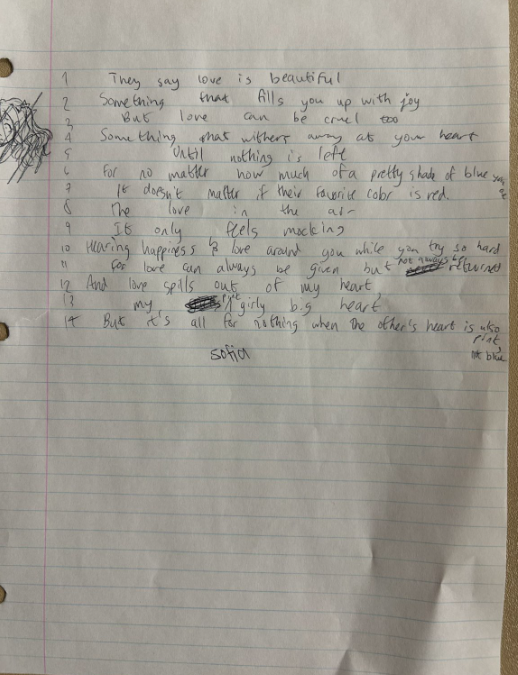 1 They say love is beautiful
2 Something that fills you up with joy
3 But love can be cruel too
4 Something that withers away at your heart
5 Until nothing is left
6 For no matter how much of a pretty shade of blue you are
7 It doesn't matter if their favorite color is red.
8 The love in the air
9 It only feels mocking
10 Hearing happiness & love around you while you try so hard
11 For love can always be given but not always returned
12 And love spills out of my heart,
13 my girly big heart
14 But it's all for nothing when the other's heart is also pink, blue
sofia